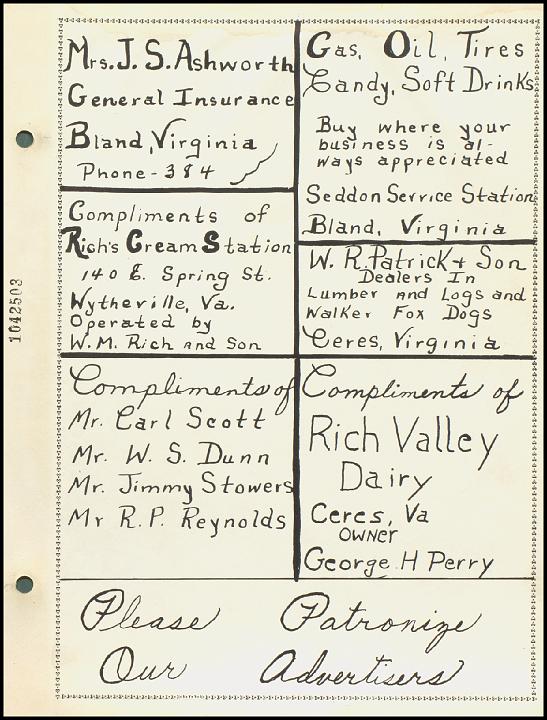 Mrs. J. S. Ashworth
General Insurance
Bland, Virginia
Phone - 384
Gas, Oil, Tires
Candy, Soft Drinks
Buy where your
business is al-
ways appreciated
Seddon Service Station
Bland, Virginia
Compliments of
Rich's Cream Station
140 E. Spring St.
Wytheville, Va.
Operated by
W. M. Rich and Son
W. R. Patrick + Son
Dealers In
Lumber and Logs and
Walker Fox Dogs
Ceres, Virginia
Compliments of
Mr. Carl Scott
Mr. W. S. Dunn
Mr. Jimmy Stowers
Mr R. P. Reynolds
Compliments of
Rich Valley
Dairy
Ceres, Va
Owner
George H Perry
Please Patronize
Our Advertisers
1042503